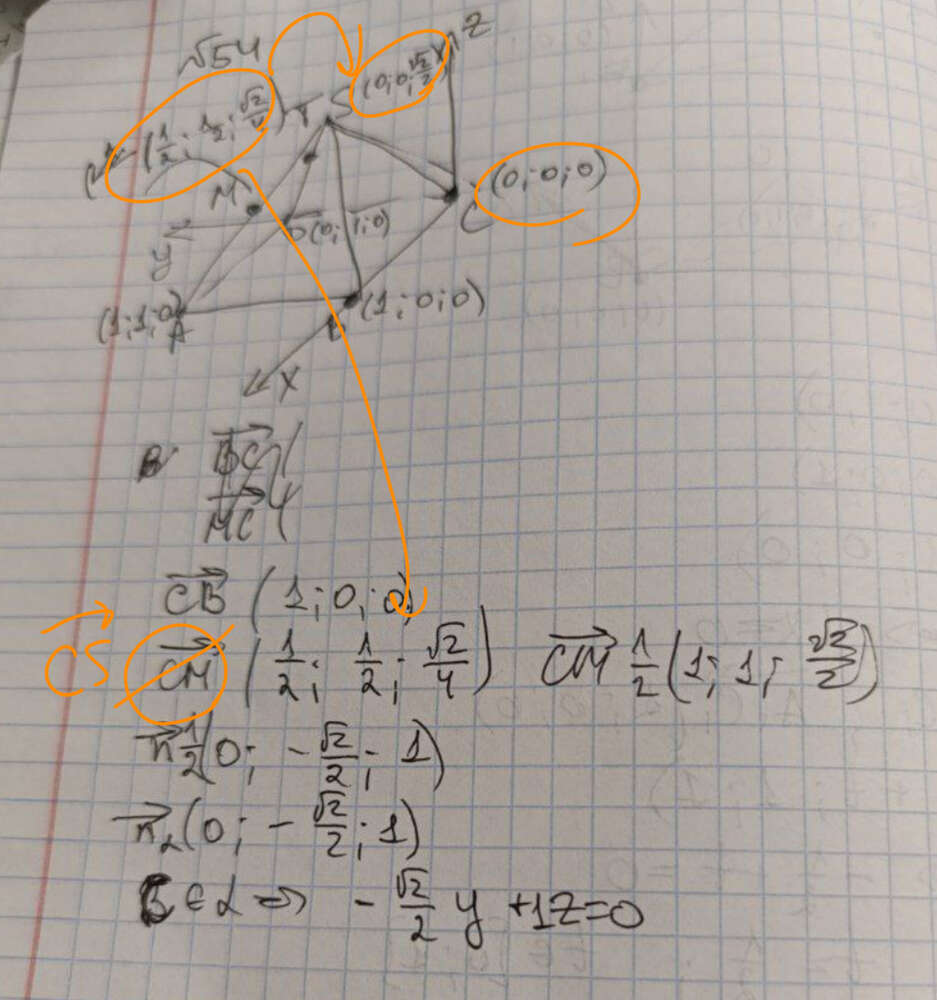 √54
(½; ½; √2/4) T S (0; 0; √2/2) Z
M
C (0; 0; 0)
y D(0; 1; 0)
(1; 1; 0) A
(1; 0; 0)
X
BC (
MC (
CB (1; 0; 0)
CS CM (1/2; 1/2; √2/4) CM 1/2 (1; 1; √2/2)
n 1/2 (0; -√2/2; 1)
n₂ (0; -√2/2; 1)
C ∈ α => -√2/2 y + 1z = 0